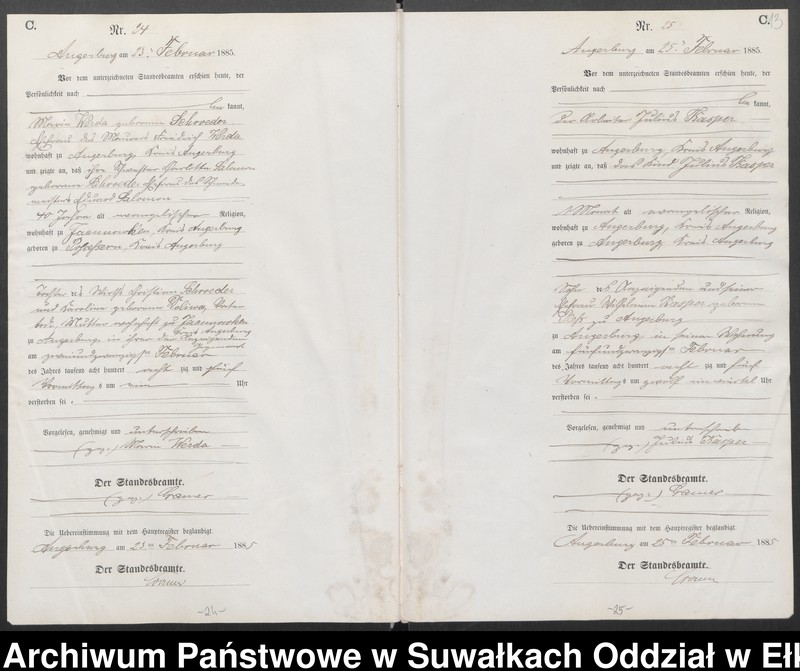 C.
Nr. 24
Angerburg am 23. Februar 1885.
Vor dem unterzeichneten Standesbeamten erschien heute, der
Persönlichkeit nach
be kannt,
Maria Werda geborene Schroeder
Ehefrau des Maurers Friedrich Werda
wohnhaft zu Angerburg Kreis Angerburg
und zeigte an, daß ihre Schwester Salomon
geborene Schroeder, Ehefrau des
meisters Eduard Salomon
40 Jahre alt evangelischer Religion,
wohnhaft zu Kreis Angerburg
geboren zu Kreis Angerburg
Tochter des Wirths Christian Schroeder
und Karoline geborenen Vater
todt, Mutter wohnhaft zu
Kreis Angerburg
zu Angerburg in der
am zweiundzwanzigsten Februar
des Jahres tausend acht hundert acht zig und fünf
Vormittags um ein Uhr
verstorben sei.
Vorgelesen, genehmigt und unterschrieben
(gez.) Maria Werda
Der Standesbeamte.
(gez.) Cramer
Die Uebereinstimmung mit dem Hauptregister beglaubigt.
Angerburg am 23ten Februar 1885
Der Standesbeamte.
Cramer
-24-
C. 13
Nr. 25
Angerburg am 25. Februar 1885.
Vor dem unterzeichneten Standesbeamten erschien heute, der
Persönlichkeit nach
be kannt,
Der Arbeiter Julius Kasper
wohnhaft zu Angerburg Kreis Angerburg
und zeigte an, daß das Kind Julius Kasper
1 Monat alt evangelischer Religion,
wohnhaft zu Angerburg, Kreis Angerburg
geboren zu Angerburg Kreis Angerburg
Sohn des Anzeigenden und seiner
Ehefrau Wilhelmine Kasper geborene
zu Angerburg
zu Angerburg in seiner Wohnung
am fünfundzwanzigsten Februar
des Jahres tausend acht hundert acht zig und fünf
Vormittags um zwölf einviertel Uhr
verstorben sei.
Vorgelesen, genehmigt und unterschrieben
(gez.) Julius Kasper
Der Standesbeamte.
(gez.) Cramer
Die Uebereinstimmung mit dem Hauptregister beglaubigt.
Angerburg am 25ten Februar 1885
Der Standesbeamte.
Cramer
-25-
Archiwum Państwowe w Suwałkach Oddział w Ełk